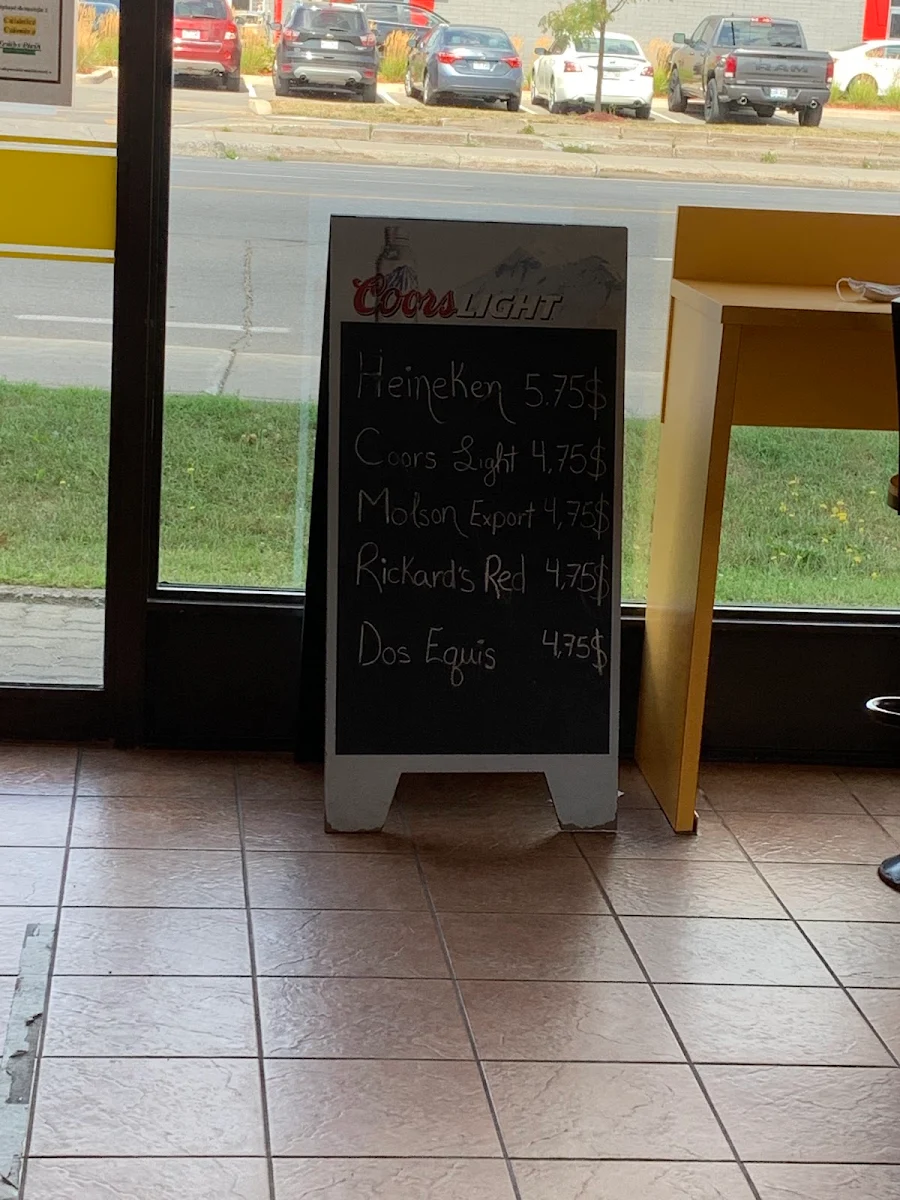 Coors LIGHT
HeineKen 5.75$
Coors Light 4,75$
Molson Export 4,75$
Rickard's Red 4,75$
Dos Equis 4,75$
RAM